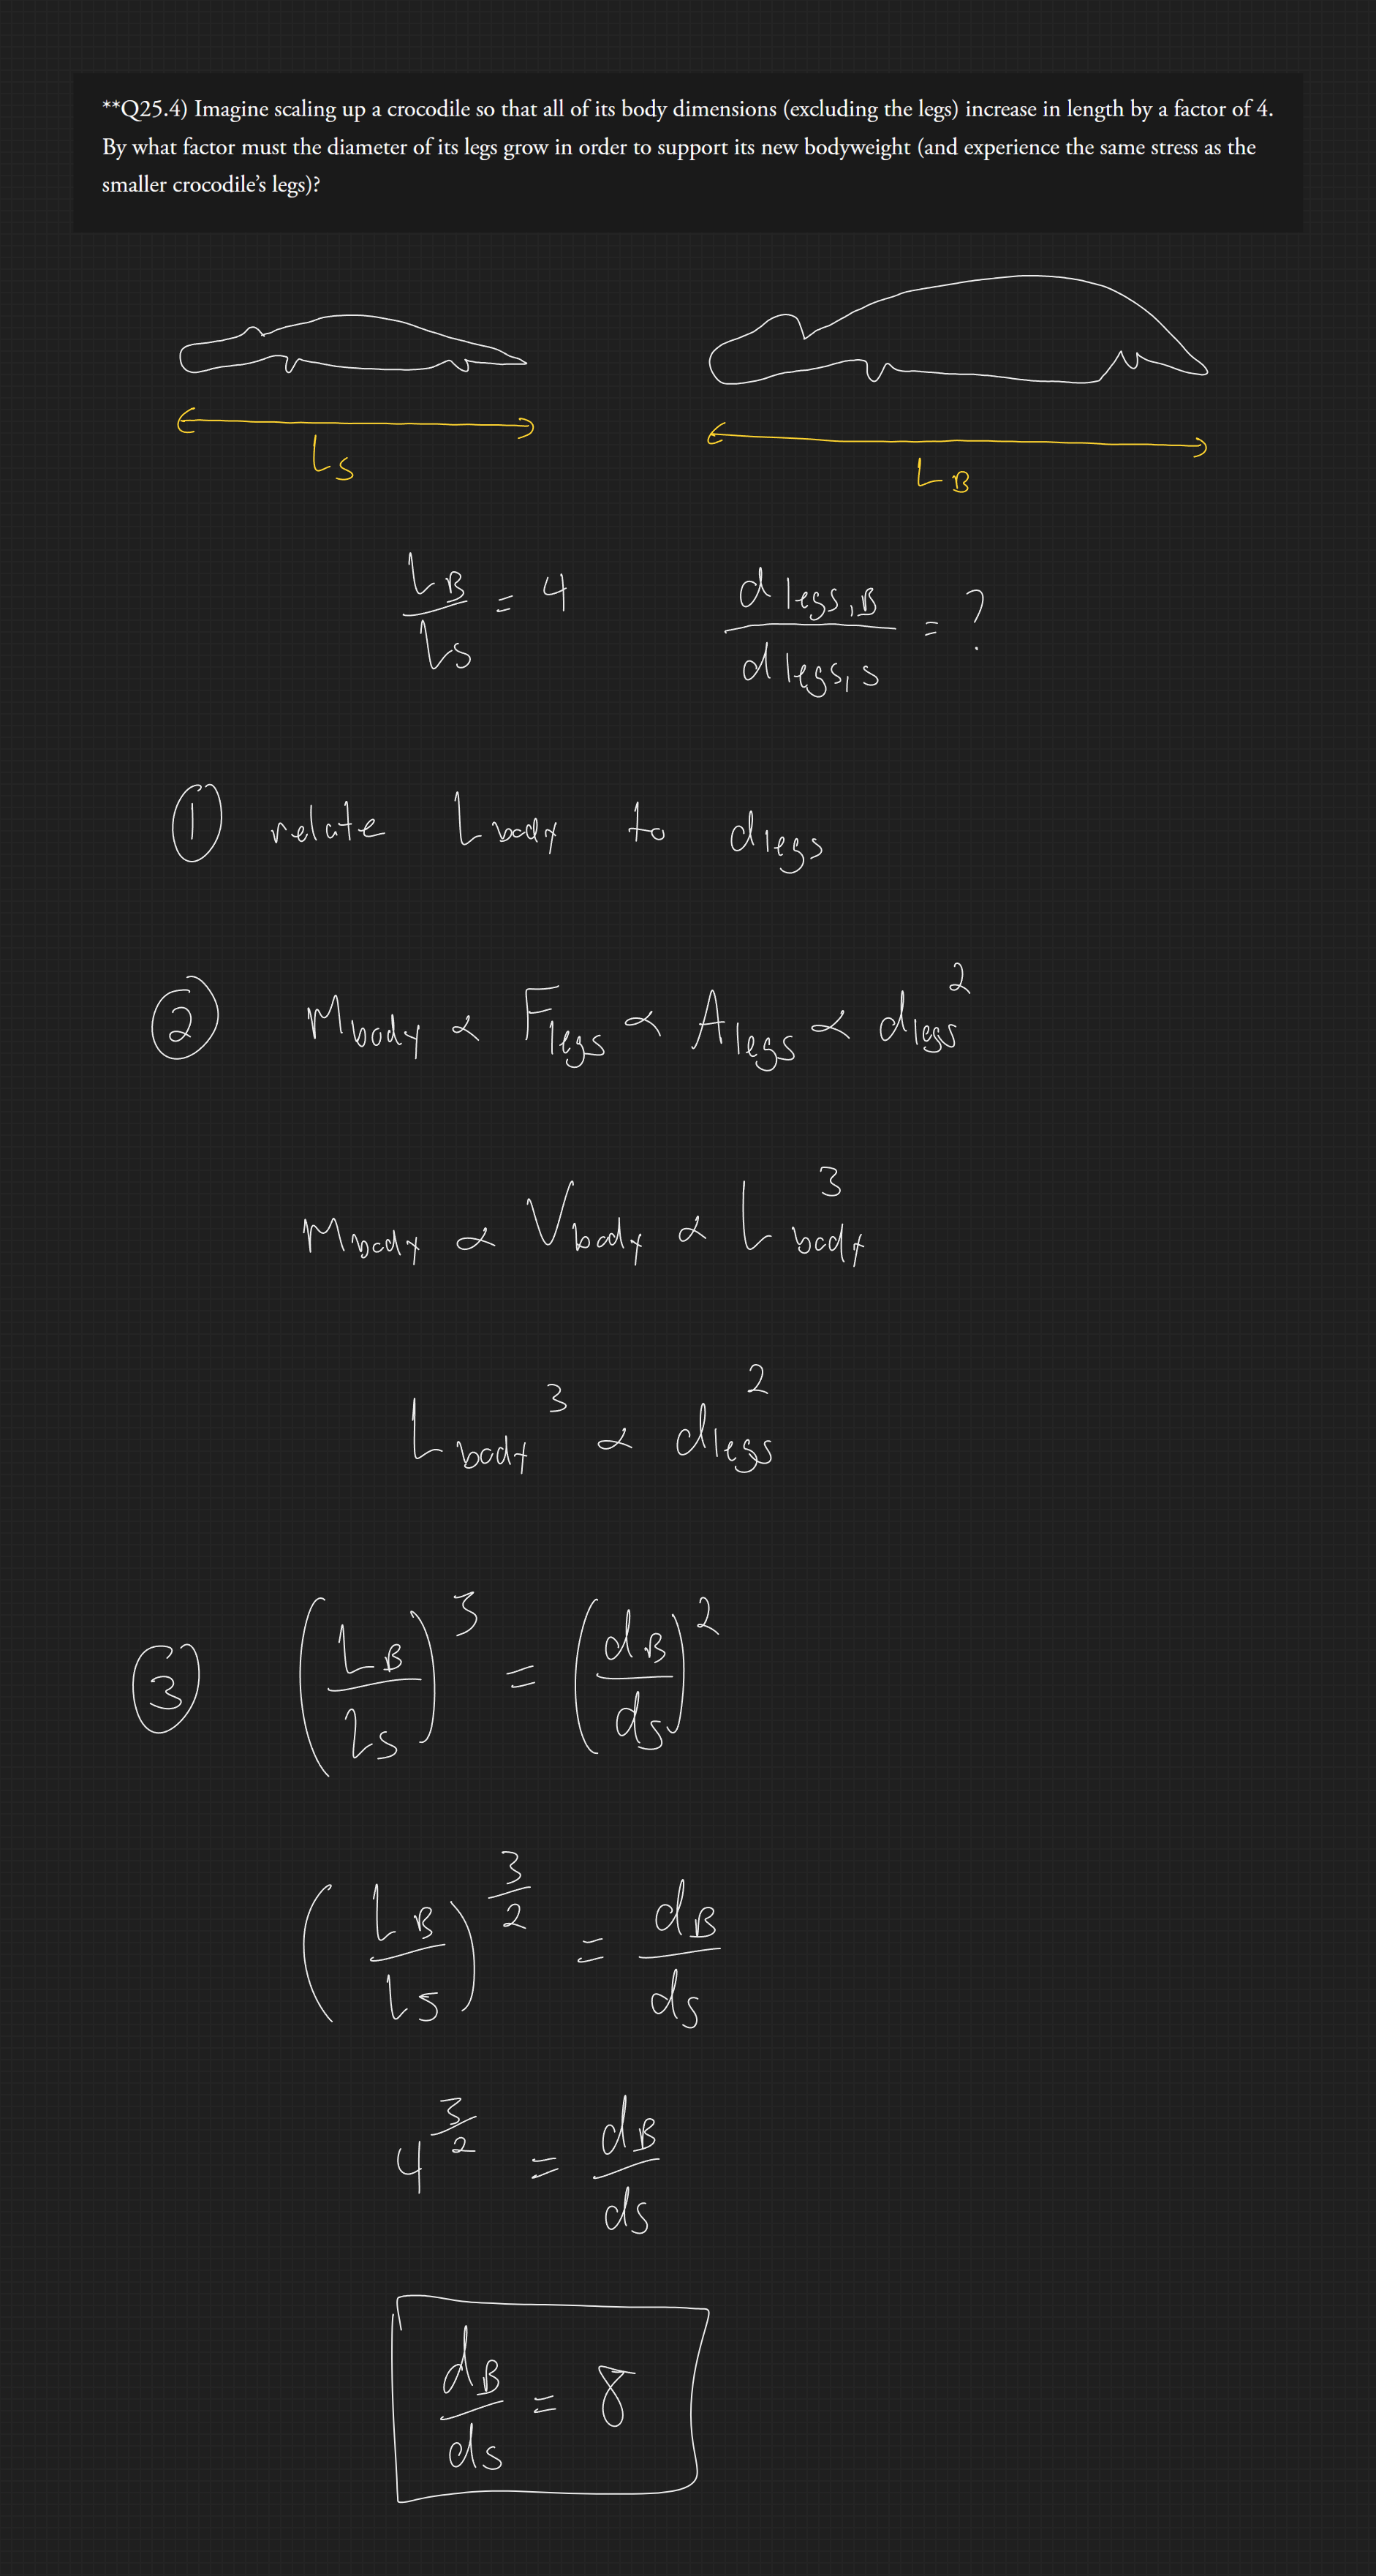 **Q25.4) Imagine scaling up a crocodile so that all of its body dimensions (excluding the legs) increase in length by a factor of 4.
By what factor must the diameter of its legs grow in order to support its new bodyweight (and experience the same stress as the
smaller crocodile’s legs)?
L_S L_B
L_B / L_S = 4 d_legs,B / d_legs,S = ?
① relate L_body to d_legs
② M_body ∝ F_legs ∝ A_legs ∝ d_legs^2
M_body ∝ V_body ∝ L_body^3
L_body^3 ∝ d_legs^2
③ (L_B / L_S)^3 = (d_B / d_S)^2
(L_B / L_S)^(3/2) = d_B / d_S
4^(3/2) = d_B / d_S
d_B / d_S = 8